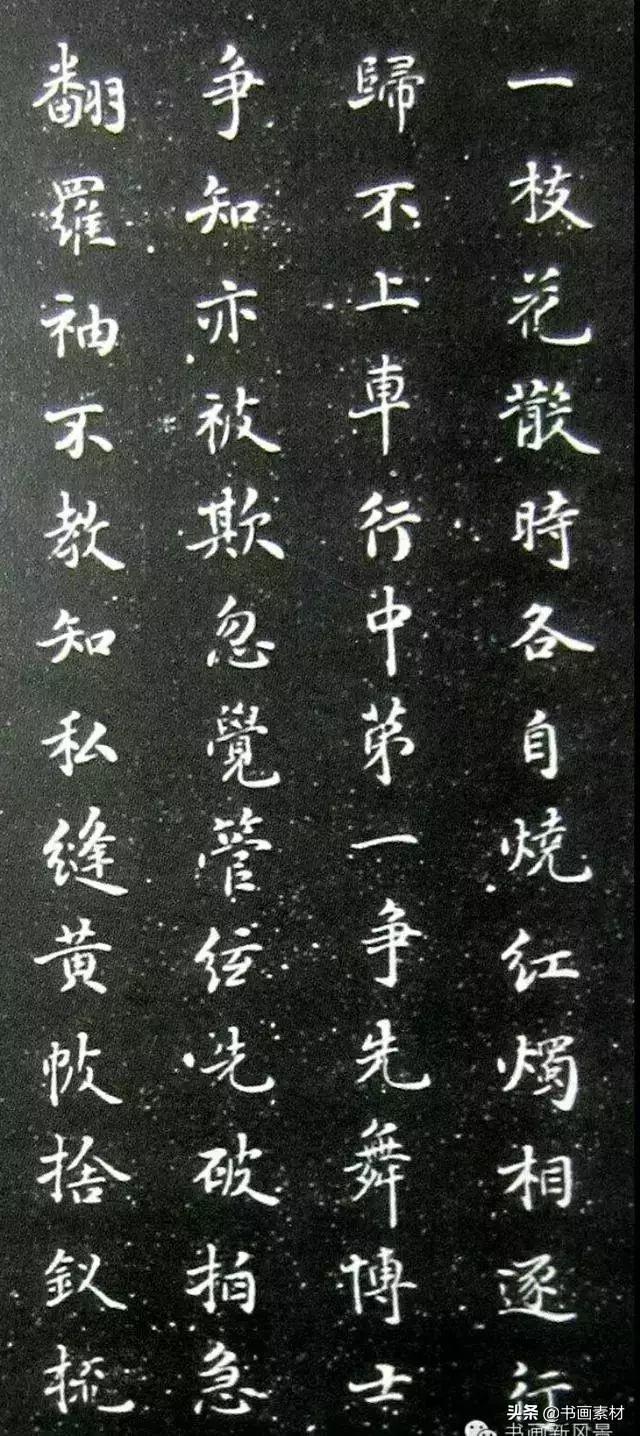 一枝花散時各自燒紅燭相逐行
歸不上車行中第一争先舞博士
争知亦被欺忽覺管絃破拍急
翻羅袖不教知私縫黄帔捨釵梳
头条 @书画素材
书画新风景